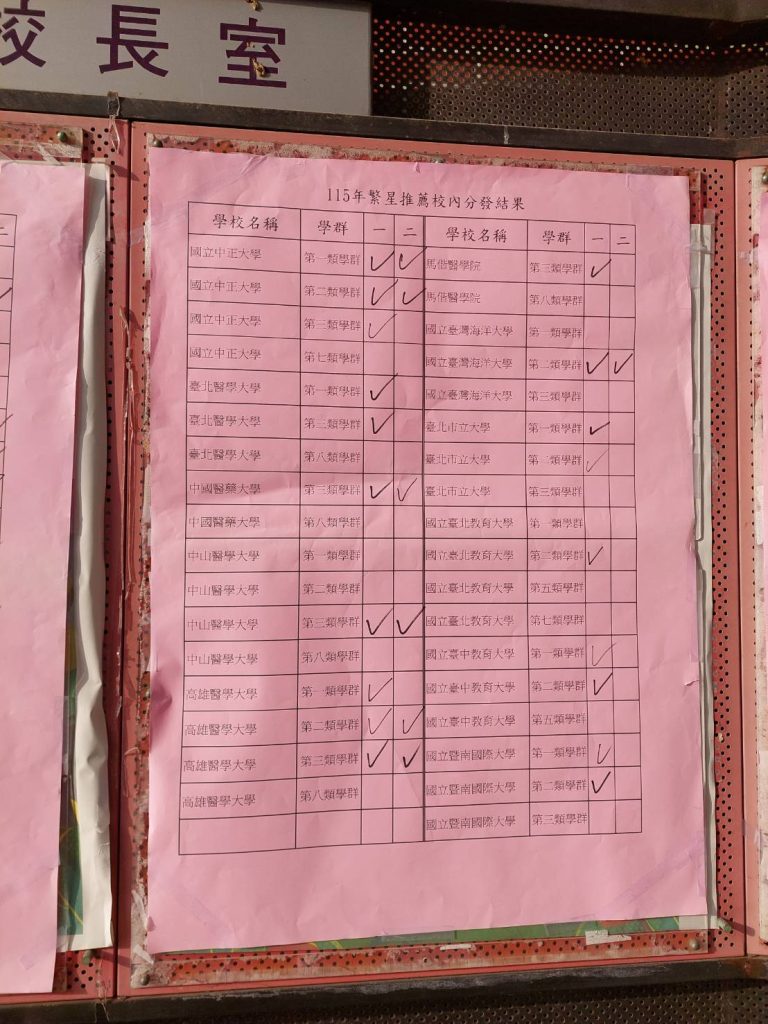 校長室
115年繁星推薦校內分發結果
學校名稱 學群 一 二 學校名稱 學群 一 二
國立中正大學 第一類學群 ✓ ✓ 馬偕醫學院 第三類學群 ✓
國立中正大學 第二類學群 ✓ ✓ 馬偕醫學院 第八類學群
國立中正大學 第三類學群 ✓ 國立臺灣海洋大學 第一類學群
國立中正大學 第七類學群 國立臺灣海洋大學 第二類學群 ✓ ✓
臺北醫學大學 第一類學群 ✓ 國立臺灣海洋大學 第三類學群
臺北醫學大學 第三類學群 ✓ 臺北市立大學 第一類學群 ✓
臺北醫學大學 第八類學群 臺北市立大學 第二類學群 ✓
中國醫藥大學 第三類學群 ✓ ✓ 臺北市立大學 第三類學群
中國醫藥大學 第八類學群 國立臺北教育大學 第一類學群
中山醫學大學 第一類學群 國立臺北教育大學 第二類學群 ✓
中山醫學大學 第二類學群 國立臺北教育大學 第五類學群
中山醫學大學 第三類學群 ✓ ✓ 國立臺北教育大學 第七類學群
中山醫學大學 第八類學群 國立臺中教育大學 第一類學群 ✓
高雄醫學大學 第一類學群 ✓ 國立臺中教育大學 第二類學群 ✓
高雄醫學大學 第二類學群 ✓ ✓ 國立臺中教育大學 第五類學群
高雄醫學大學 第三類學群 ✓ ✓ 國立暨南國際大學 第一類學群 ✓
高雄醫學大學 第八類學群 國立暨南國際大學 第二類學群 ✓
國立暨南國際大學 第三類學群
二